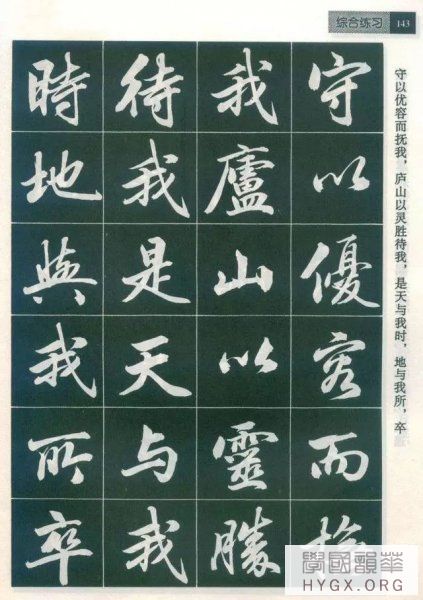 综合练习 143
守以優容而撫
我廬山以靈勝
待我是天与我
時地與我所卒
守以优容而抚我，庐山以灵胜待我，是天与我时，地与我所，卒
學國韻華
HYGX.ORG